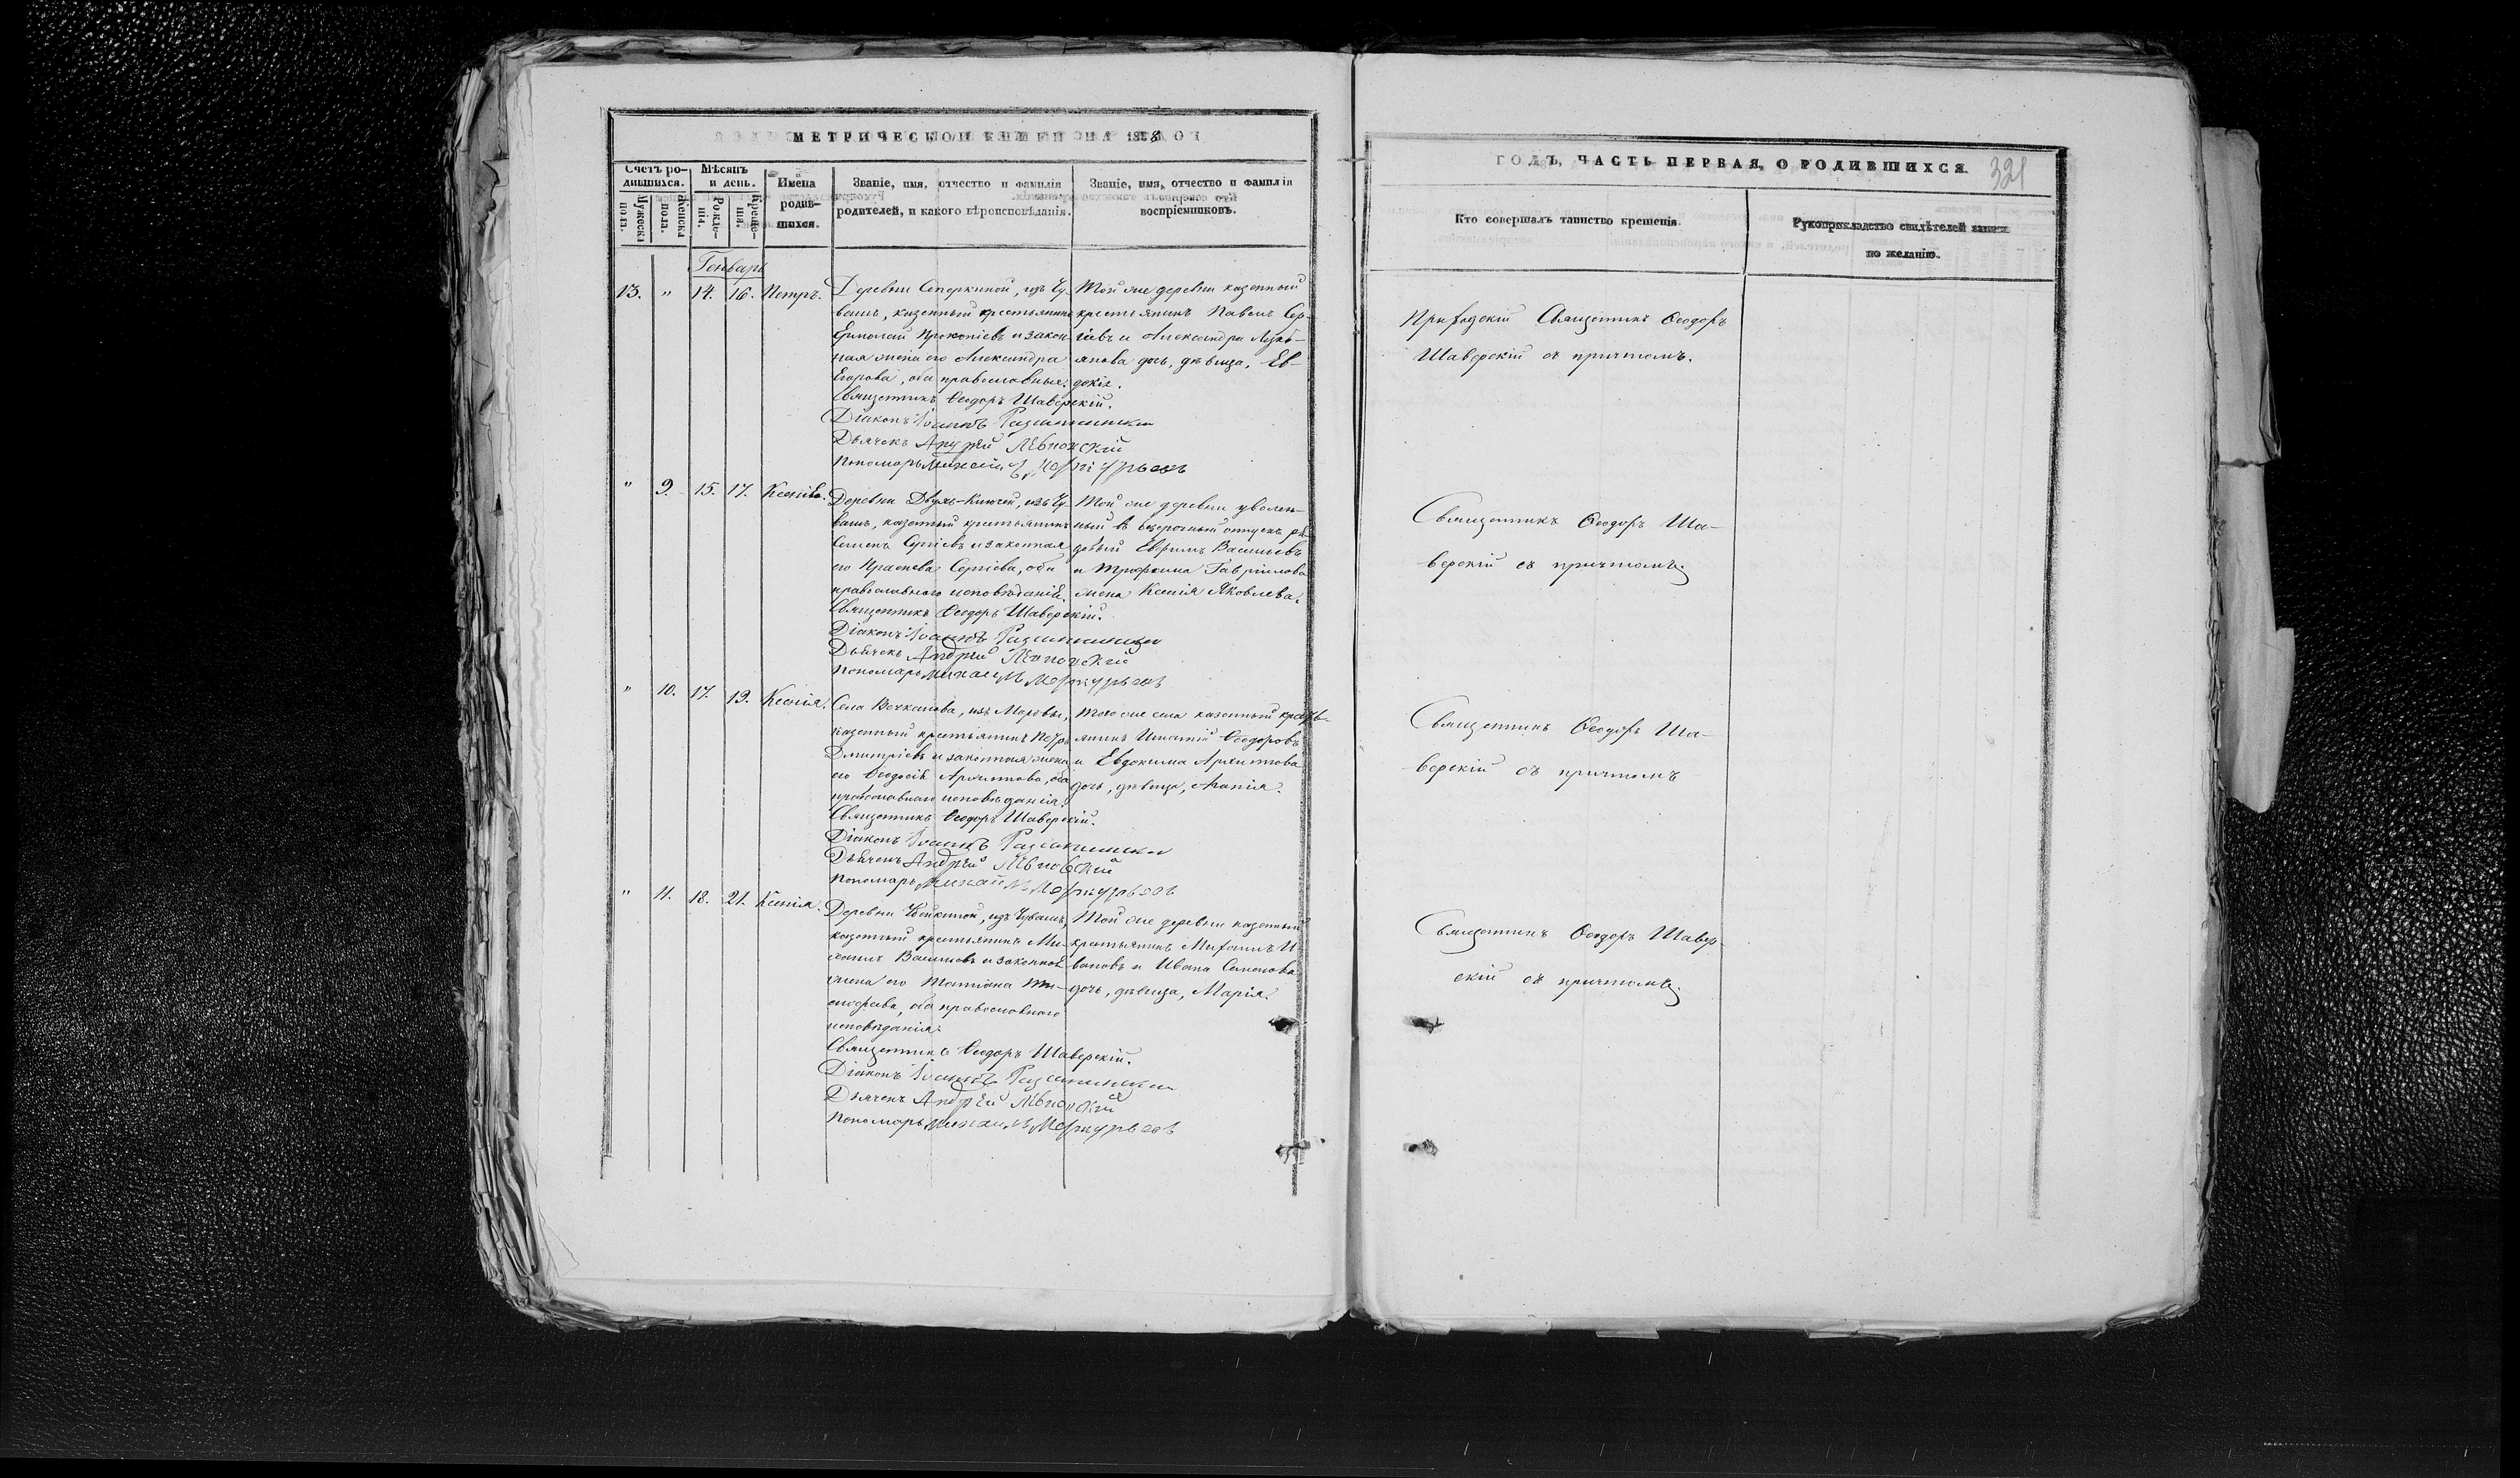 МЕТРИЧЕСКОЙ КНИГИ НА 1858
Счетъ ро-
дившихся.
Мужеска
пола.
Женска
пола.
Мѣсяцъ
и день.
Рожде-
нія.
Креще-
нія.
Имена
родив-
шихся.
Званіе, имя, отчество и фамилія
родителей, и какого вѣроисповѣданія.
Званіе, имя, отчество и фамилія
воспріемниковъ.
Генварь
13. " 14. 16. Петръ.
Деревни Саперкиной, изъ Чу-
вашъ, казенный крестьянинъ
Ермолай Прокопіевъ и закон-
ная жена его Александра
Егорова, оба православные.
Священникъ Ѳеодоръ Шаверскій.
Діаконъ Іоаннъ
Дьячекъ Андрей
Пономарь Михаилъ Меркурьевъ
Той же деревни казенный
крестьянинъ Павелъ Сер-
гіевъ и Александра Луко-
янова дочь, дѣвица, Ев-
докія.
" 9. 15. 17. Ксенія.
Деревни Двухъ-Ключей, изъ Чу-
вашъ, казенный крестьянинъ
Семенъ Сергіевъ и законная
его Прасковья Сергіева, оба
православнаго исповѣданія.
Священникъ Ѳеодоръ Шаверскій.
Діаконъ Іоаннъ
Дьячекъ Андрей
Пономарь Михаилъ Меркурьевъ
Той же деревни уволен-
ный въ безсрочный отпускъ ря-
довый Ефремъ Васильевъ
и Трофима Гаврилова
жена Ксенія Яковлева.
" 10. 17. 19. Ксенія.
Села Вечканова, изъ Мордвы,
казенный крестьянинъ Петръ
Дмитріевъ и законная жена
его Ѳеодосія Архипова, оба
православнаго исповѣданія.
Священникъ Ѳеодоръ Шаверскій.
Діаконъ Іоаннъ
Дьячекъ Андрей
Пономарь Михаилъ Меркурьевъ
Того же села казенный кресть-
янинъ Игнатій Ѳеодоровъ
и Евдокима Архипова
дочь, дѣвица, Агапія.
" 11. 18. 21. Ксенія.
Деревни изъ Чувашъ,
казенный крестьянинъ Ми-
хаилъ Васильевъ и законная
жена его Татіана Ти-
моѳеева, оба православнаго
исповѣданія.
Священникъ Ѳеодоръ Шаверскій.
Діаконъ Іоаннъ
Дьячекъ Андрей
Пономарь Михаилъ Меркурьевъ
Той же деревни казенный
крестьянинъ Михаилъ И-
вановъ и Ивана Семенова
дочь, дѣвица, Марія.
ГОДЪ, ЧАСТЬ ПЕРВАЯ, О РОДИВШИХСЯ.
321
Кто совершалъ таинство крещенія.
Рукоприкладство свидѣтелей записи
по желанію.
Приходскій Священникъ Ѳеодоръ
Шаверскій съ причтомъ.
Священникъ Ѳеодоръ Ша-
верскій съ причтомъ.
Священникъ Ѳеодоръ Ша-
верскій съ причтомъ
Священникъ Ѳеодоръ Шавер-
скій съ причтомъ.